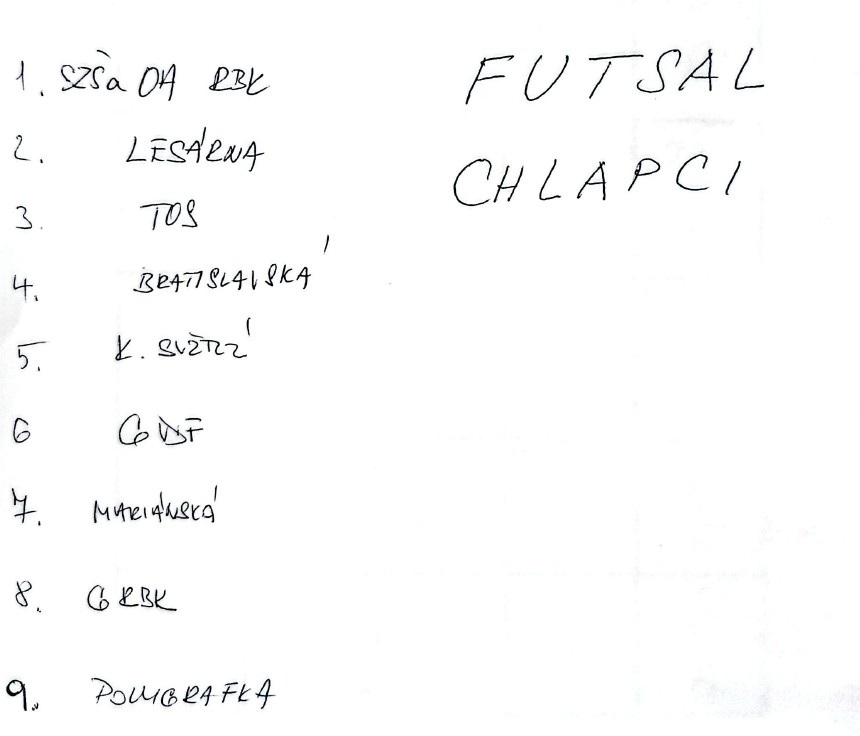 FUTSAL
CHLAPCI
1. SZŠa OA RBK
2. LESÁRNA
3. TOS
4. BRATISLAVSKÁ
5. K. SVÄTÉ
6 G VBF
7. MARIÁNSKÁ
8. G RBK
9. POLYGRAFKA